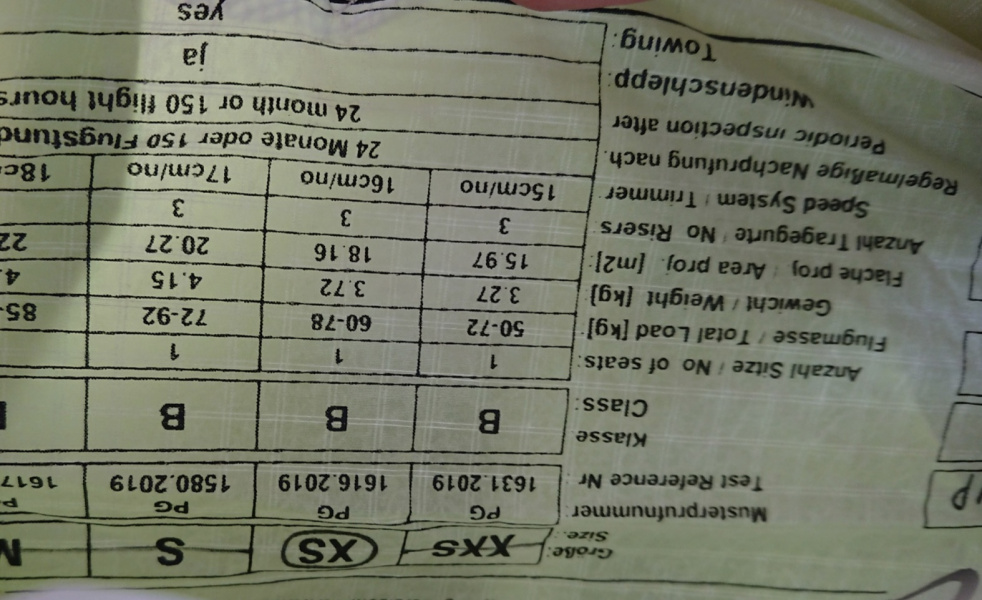 Größe:
Size: XXS XS S M
Musterprüfnummer: PG PG PG
Test Reference Nr 1631.2019 1616.2019 1580.2019 1617
Klasse
Class: B B B
Anzahl Sitze / No of seats: 1 1 1
Flugmasse / Total Load [kg]: 50-72 60-78 72-92 85-
Gewicht / Weight [kg] 3.27 3.72 4.15 4.
Fläche proj / Area proj. [m2]: 15.97 18.16 20.27 22
Anzahl Tragegurte / No Risers 3 3 3
Speed System / Trimmer 15cm/no 16cm/no 17cm/no 18c
Regelmäßige Nachprüfung nach. 24 Monate oder 150 Flugstund
Periodic inspection after 24 month or 150 flight hours
Windenschlepp: ja
Towing: yes